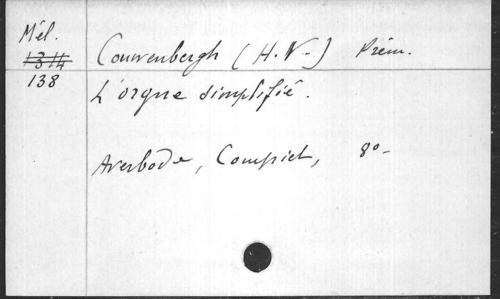 Mél.
1314
138
Couwenbergh (H.V.) Prém.
L'orgue simplifié.
Averbode, 8°-